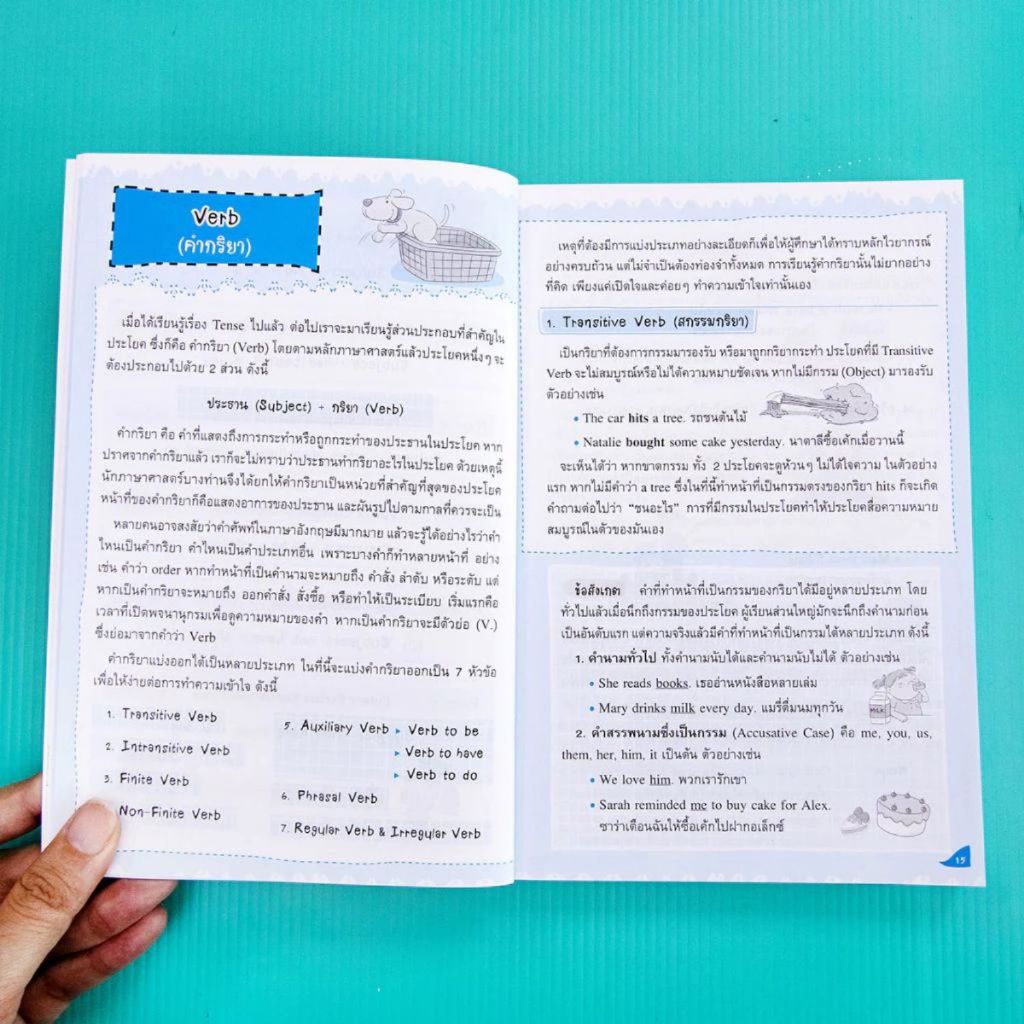 Verb
(คำกริยา)
เมื่อได้เรียนรู้เรื่อง Tense ไปแล้ว ต่อไปเราจะมาเรียนรู้ส่วนประกอบที่สำคัญใน
ประโยค ซึ่งก็คือ คำกริยา (Verb) โดยตามหลักภาษาศาสตร์แล้วประโยคหนึ่งๆ จะ
ต้องประกอบไปด้วย 2 ส่วน ดังนี้
ประธาน (Subject) + กริยา (Verb)
คำกริยา คือ คำที่แสดงถึงการกระทำหรือถูกกระทำของประธานในประโยค หาก
ปราศจากคำกริยาแล้ว เราก็จะไม่ทราบว่าประธานทำกริยาอะไรในประโยค ด้วยเหตุนี้
นักภาษาศาสตร์บางท่านจึงได้ยกให้คำกริยาเป็นหน่วยที่สำคัญที่สุดของประโยค
หน้าที่ของคำกริยาก็คือแสดงอาการของประธาน และผันรูปไปตามกาลที่ควรจะเป็น
หลายคนอาจสงสัยว่าคำศัพท์ในภาษาอังกฤษมีมากมาย แล้วจะรู้ได้อย่างไรว่าคำ
ไหนเป็นคำกริยา คำไหนเป็นคำประเภทอื่น เพราะบางคำก็ทำหลายหน้าที่ อย่าง
เช่น คำว่า order หากทำหน้าที่เป็นคำนามจะหมายถึง คำสั่ง ลำดับ หรือระดับ แต่
หากเป็นคำกริยาจะหมายถึง ออกคำสั่ง สั่งซื้อ หรือทำให้เป็นระเบียบ เริ่มแรกคือ
เวลาที่เปิดพจนานุกรมเพื่อดูความหมายของคำ หากเป็นคำกริยาจะมีตัวย่อ (V.)
ซึ่งย่อมาจากคำว่า Verb
คำกริยาแบ่งออกได้เป็นหลายประเภท ในที่นี้จะแบ่งคำกริยาออกเป็น 7 หัวข้อ
เพื่อให้ง่ายต่อการทำความเข้าใจ ดังนี้
1. Transitive Verb
2. Intransitive Verb
3. Finite Verb
Non-Finite Verb
5. Auxiliary Verb ▸ Verb to be
▸ Verb to have
▸ Verb to do
6. Phrasal Verb
7. Regular Verb & Irregular Verb
เหตุที่ต้องมีการแบ่งประเภทอย่างละเอียดก็เพื่อให้ผู้ศึกษาได้ทราบหลักไวยากรณ์
อย่างครบถ้วน แต่ไม่จำเป็นต้องท่องจำทั้งหมด การเรียนรู้คำกริยานั้นไม่ยากอย่าง
ที่คิด เพียงแค่เปิดใจและค่อยๆ ทำความเข้าใจเท่านั้นเอง
1. Transitive Verb (สกรรมกริยา)
เป็นกริยาที่ต้องการกรรมมารองรับ หรือมาถูกกริยากระทำ ประโยคที่มี Transitive
Verb จะไม่สมบูรณ์หรือไม่ได้ความหมายชัดเจน หากไม่มีกรรม (Object) มารองรับ
ตัวอย่างเช่น
• The car hits a tree. รถชนต้นไม้
• Natalie bought some cake yesterday. นาตาลีซื้อเค้กเมื่อวานนี้
จะเห็นได้ว่า หากขาดกรรม ทั้ง 2 ประโยคจะดูห้วนๆ ไม่ได้ใจความ ในตัวอย่าง
แรก หากไม่มีคำว่า a tree ซึ่งในที่นี้ทำหน้าที่เป็นกรรมตรงของกริยา hits ก็จะเกิด
คำถามต่อไปว่า "ชนอะไร" การที่มีกรรมในประโยคทำให้ประโยคสื่อความหมาย
สมบูรณ์ในตัวของมันเอง
ข้อสังเกต คำที่ทำหน้าที่เป็นกรรมของกริยาได้มีอยู่หลายประเภท โดย
ทั่วไปแล้วเมื่อนึกถึงกรรมของประโยค ผู้เรียนส่วนใหญ่มักจะนึกถึงคำนามก่อน
เป็นอันดับแรก แต่ความจริงแล้วมีคำที่ทำหน้าที่เป็นกรรมได้หลายประเภท ดังนี้
1. คำนามทั่วไป ทั้งคำนามนับได้และคำนามนับไม่ได้ ตัวอย่างเช่น
• She reads books. เธออ่านหนังสือหลายเล่ม
• Mary drinks milk every day. แมรี่ดื่มนมทุกวัน
MILK
2. คำสรรพนามซึ่งเป็นกรรม (Accusative Case) คือ me, you, us,
them, her, him, it เป็นต้น ตัวอย่างเช่น
• We love him. พวกเรารักเขา
• Sarah reminded me to buy cake for Alex.
ซาร่าเตือนฉันให้ซื้อเค้กไปฝากอเล็กซ์
15